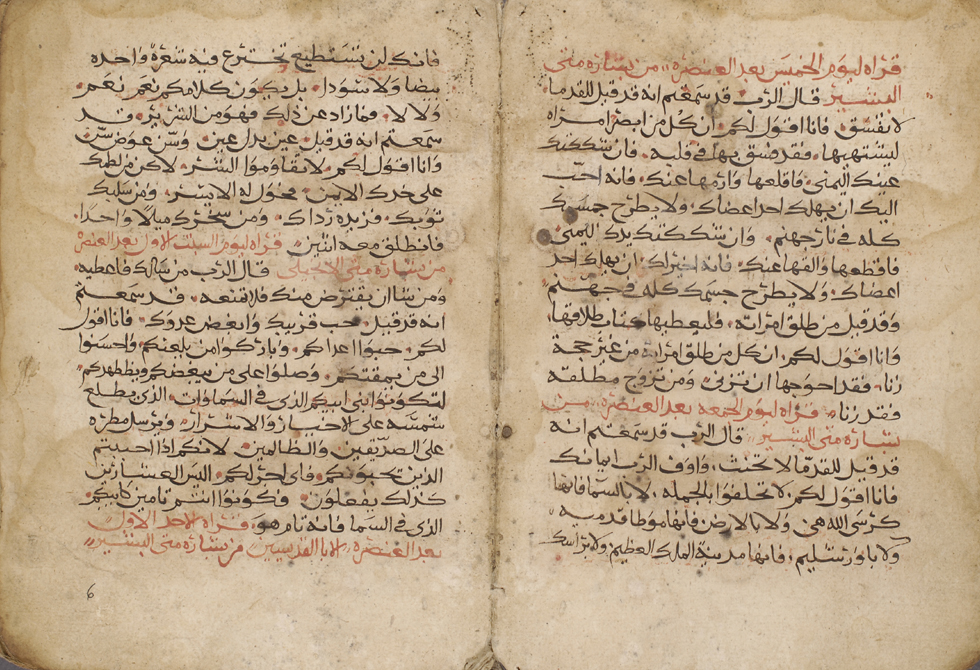 قراه ليوم الخميس بعد العنصره من بشاره متى
البشير قال الرب قد سمعتم انه قد قيل للقدما
لا تفسق فانا اقول لكم ان كل من ابصر امراه
ليشتهيها فقد فسق بها في قلبه فان شككتك
عينك اليمنى فاقلعها وارمها عنك فانه احب
اليك ان يهلك احد اعضاك ولا يطرح جسمك
كله في نار جهنم وان شككتك يدك اليمنى
فاقطعها والقها عنك فانه خير لك ان يهلك احد
اعضاك ولا يطرح جسمك كله في جهنم
وقد قيل من طلق امراته فليعطيها كتاب طلاقها
وانا اقول لكم ان كل من طلق امراة من غير حجة
زنا فقد احوجها ان تزنى ومن تزوج مطلقه
فقد زنا قراه ليوم الجمعه بعد العنصره من
بشاره متى البشير قال الرب قد سمعتم انه
قد قيل للقدما لا تحنث واوف الرب ايمانك
فانا اقول لكم لا تحلفوا بالجمله لا بالسما فانها
كرسى الله هى ولا بالارض فانها موطا قدميه
ولا باورشليم فانها مدينة الملك العظيم ولا براسك
فانك لن تستطيع تخترع فيه شعرة واحده
بيضا ولا سودا بل يكون كلامكم نعم نعم
ولا لا فما زاد عن ذلك فهو من الشرير وقد
سمعتم انه قد قيل عين بدل عين وسن عوض سن
وانا اقول لكم لا تقاوموا الشر لاكن من لطمك
على خدك الايمن فحول له الايسر ومن سلبك
ثوبك فزيده رداك ومن سخرك ميلا واحدا
فانطلق معه اثنين قراه ليوم السبت الاول بعد العنصره
من بشاره متى الانجيلى قال الرب من سالك فاعطيه
ومن شا ان يقترض منك فلا تمنعه قد سمعتم
انه قد قيل حب قريبك وابغض عدوك فانا اقول
لكم حبوا اعداكم وباركوا من يلعنكم واحسنوا
الى من يمقتكم وصلوا على من يبغضكم ويطهدكم
لتكونوا بنى ابيكم الذى في السماوات الذى يطلع
شمسه على الاخيار والاشرار ويرسل مطره
على الصديقين والظالمين لانكم اذا احببتم
الذين تحبونكم فاى اجر لكم اليس العشارين
كذلك يفعلون وكونوا انتم تامين كابيكم
الذى في السما فانه تام هو قراه الاحد الاول
بعد العنصره الابا القديسين من بشاره متى البشير
6